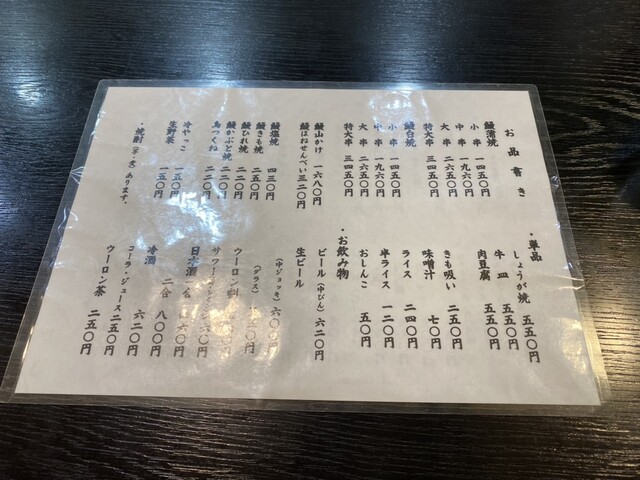 お品書き
鰻蒲焼
小串 一四五〇円
中串 一九六〇円
大串 二六五〇円
特大串 三四五〇円
鰻白焼
小串 一四五〇円
中串 一九六〇円
大串 二六五〇円
特大串 三四五〇円
鰻山かけ 一六八〇円
鰻ほねせんべい 三二〇円
鰻塩焼 四三〇円
鰻きも焼 二五〇円
鰻ひれ焼 二二〇円
鰻かぶと焼 二二〇円
鳥つくね 二二〇円
冷やっこ 一五〇円
生野菜 一五〇円
・焼酎(芋・麦)あります。
・単品
しょうが焼 五五〇円
牛皿 五五〇円
肉豆腐 五五〇円
きも吸い 二五〇円
味噌汁 七〇円
ライス 二四〇円
半ライス 一二〇円
おしんこ 五〇円
・お飲み物
ビール(中びん) 六二〇円
生ビール
(中ジョッキ) 六〇〇円
(グラス) 二〇円
ウーロン割 〇円
サワー 六〇円
日本酒 一合 六〇円
二合 八〇〇円
冷酒 六二〇円
コーラ・ジュース 二五〇円
ウーロン茶 二五〇円